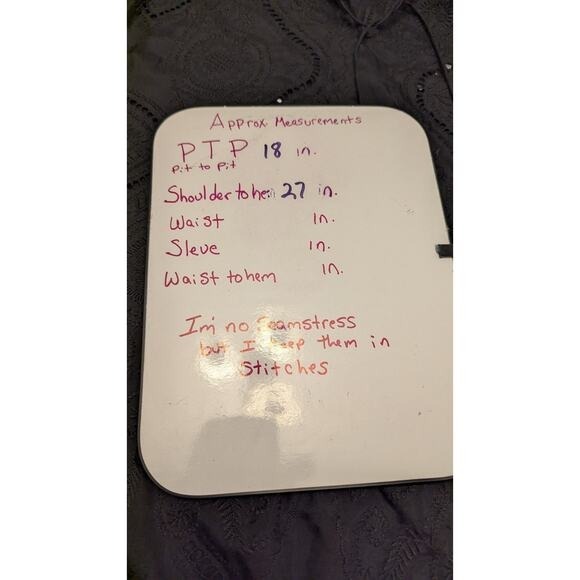 Approx. Measurements
PTP 18 in.
Pit to Pit
Shoulder to hem 27 in.
Waist in.
Sleve in.
Waist to hem in.
I'm no Seamstress
but I keep them in
Stitches